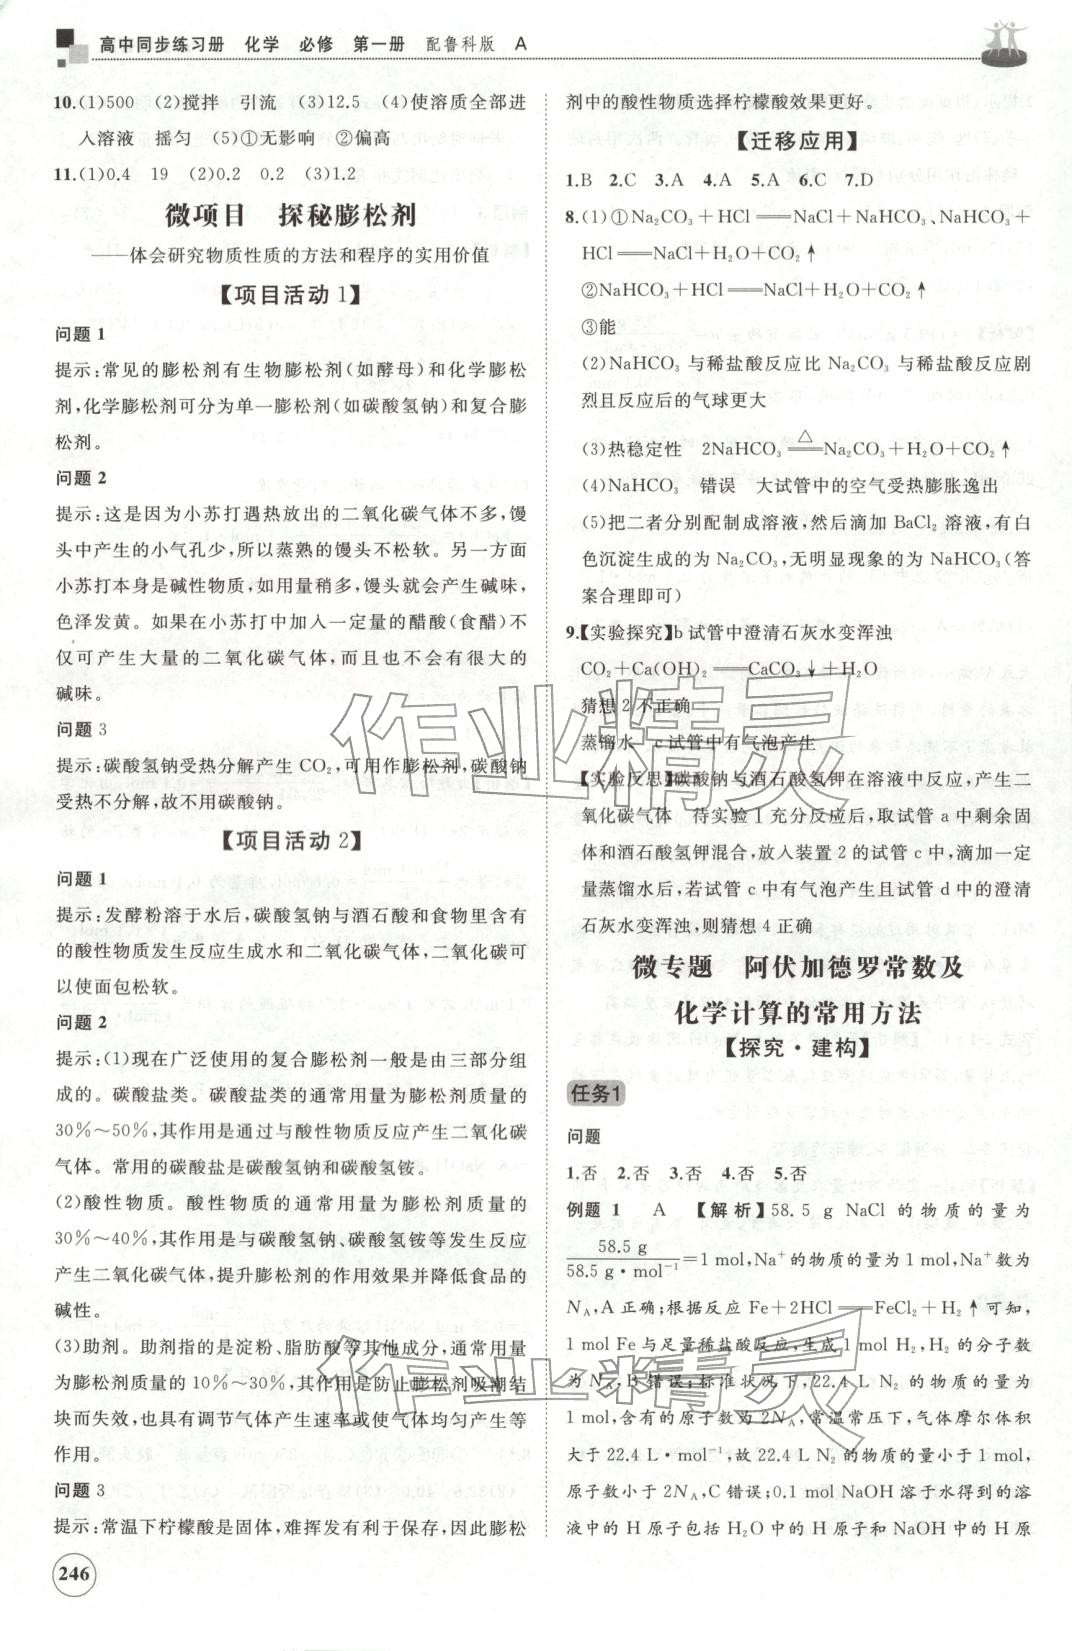 高中同步练习册 化学 必修 第一册 配鲁科版 A
10.(1)500 (2)搅拌 引流 (3)12.5 (4)使溶质全部进
入溶液 摇匀 (5)①无影响 ②偏高
11.(1)0.4 19 (2)0.2 0.2 (3)1.2
微项目 探秘膨松剂
——体会研究物质性质的方法和程序的实用价值
【项目活动1】
问题1
提示:常见的膨松剂有生物膨松剂(如酵母)和化学膨松
剂,化学膨松剂可分为单一膨松剂(如碳酸氢钠)和复合膨
松剂。
问题2
提示:这是因为小苏打遇热放出的二氧化碳气体不多,馒
头中产生的小气孔少,所以蒸熟的馒头不松软。另一方面
小苏打本身是碱性物质,如用量稍多,馒头就会产生碱味,
色泽发黄。如果在小苏打中加入一定量的醋酸(食醋)不
仅可产生大量的二氧化碳气体,而且也不会有很大的
碱味。
问题3
提示:碳酸氢钠受热分解产生CO₂,可用作膨松剂,碳酸钠
受热不分解,故不用碳酸钠。
【项目活动2】
问题1
提示:发酵粉溶于水后,碳酸氢钠与酒石酸和食物里含有
的酸性物质发生反应生成水和二氧化碳气体,二氧化碳可
以使面包松软。
问题2
提示:(1)现在广泛使用的复合膨松剂一般是由三部分组
成的。碳酸盐类。碳酸盐类的通常用量为膨松剂质量的
30%~50%,其作用是通过与酸性物质反应产生二氧化碳
气体。常用的碳酸盐是碳酸氢钠和碳酸氢铵。
(2)酸性物质。酸性物质的通常用量为膨松剂质量的
30%~40%,其作用是与碳酸氢钠、碳酸氢铵等发生反应
产生二氧化碳气体,提升膨松剂的作用效果并降低食品的
碱性。
(3)助剂。助剂指的是淀粉、脂肪酸等其他成分,通常用量
为膨松剂质量的10%~30%,其作用是防止膨松剂吸潮结
块而失效,也具有调节气体产生速率或使气体均匀产生等
作用。
问题3
提示:常温下柠檬酸是固体,难挥发有利于保存,因此膨松
246
剂中的酸性物质选择柠檬酸效果更好。
【迁移应用】
1.B 2.C 3.A 4.A 5.A 6.C 7.D
8.(1)①Na₂CO₃+HCl══NaCl+NaHCO₃、NaHCO₃+
HCl══NaCl+H₂O+CO₂↑
②NaHCO₃+HCl══NaCl+H₂O+CO₂↑
③能
(2)NaHCO₃与稀盐酸反应比Na₂CO₃与稀盐酸反应剧
烈且反应后的气球更大
(3)热稳定性 2NaHCO₃ ≜ Na₂CO₃+H₂O+CO₂↑
(4)NaHCO₃ 错误 大试管中的空气受热膨胀逸出
(5)把二者分别配制成溶液,然后滴加BaCl₂溶液,有白
色沉淀生成的为Na₂CO₃,无明显现象的为NaHCO₃(答
案合理即可)
9.【实验探究】b试管中澄清石灰水变浑浊
CO₂+Ca(OH)₂══CaCO₃↓+H₂O
猜想2不正确
蒸馏水 c试管中有气泡产生
【实验反思】碳酸钠与酒石酸氢钾在溶液中反应,产生二
氧化碳气体 待实验Ⅰ充分反应后,取试管a中剩余固
体和酒石酸氢钾混合,放入装置2的试管c中,滴加一定
量蒸馏水后,若试管c中有气泡产生且试管d中的澄清
石灰水变浑浊,则猜想4正确
微专题 阿伏加德罗常数及
化学计算的常用方法
【探究·建构】
任务1
问题
1.否 2.否 3.否 4.否 5.否
例题1 A 【解析】58.5 g NaCl的物质的量为
58.5 g/58.5 g·mol⁻¹=1 mol,Na⁺的物质的量为1 mol,Na⁺数为
N_A,A正确;根据反应Fe+2HCl══FeCl₂+H₂↑可知,
1 mol Fe与足量稀盐酸反应,生成1 mol H₂,H₂的分子数
为N_A,B错误;标准状况下,22.4 L N₂的物质的量为
1 mol,含有的原子数为2N_A,常温常压下,气体摩尔体积
大于22.4 L·mol⁻¹,故22.4 L N₂的物质的量小于1 mol,
原子数小于2N_A,C错误;0.1 mol NaOH溶于水得到的溶
液中的H原子包括H₂O中的H原子和NaOH中的H原
作业精灵
作业精灵